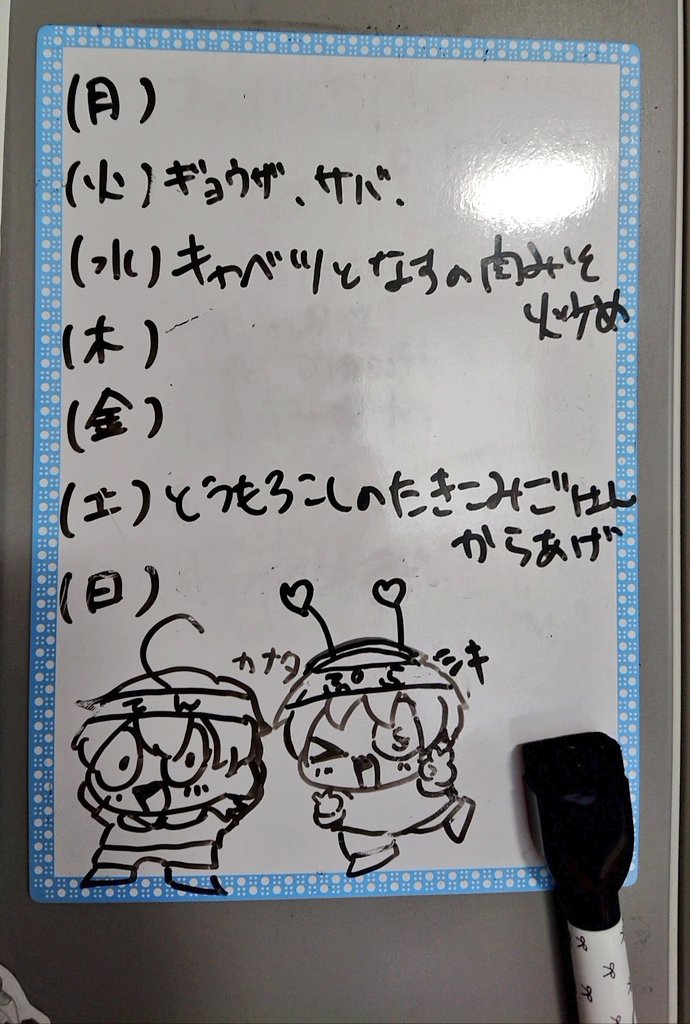 (月)
(火)ギョウザ、サバ、
(水)キャベツとなすの肉みそ
炒め
(木)
(金)
(土)とうもろこしのたきこみごはん
からあげ
(日)
カナタ
シキ
てん
ぷら